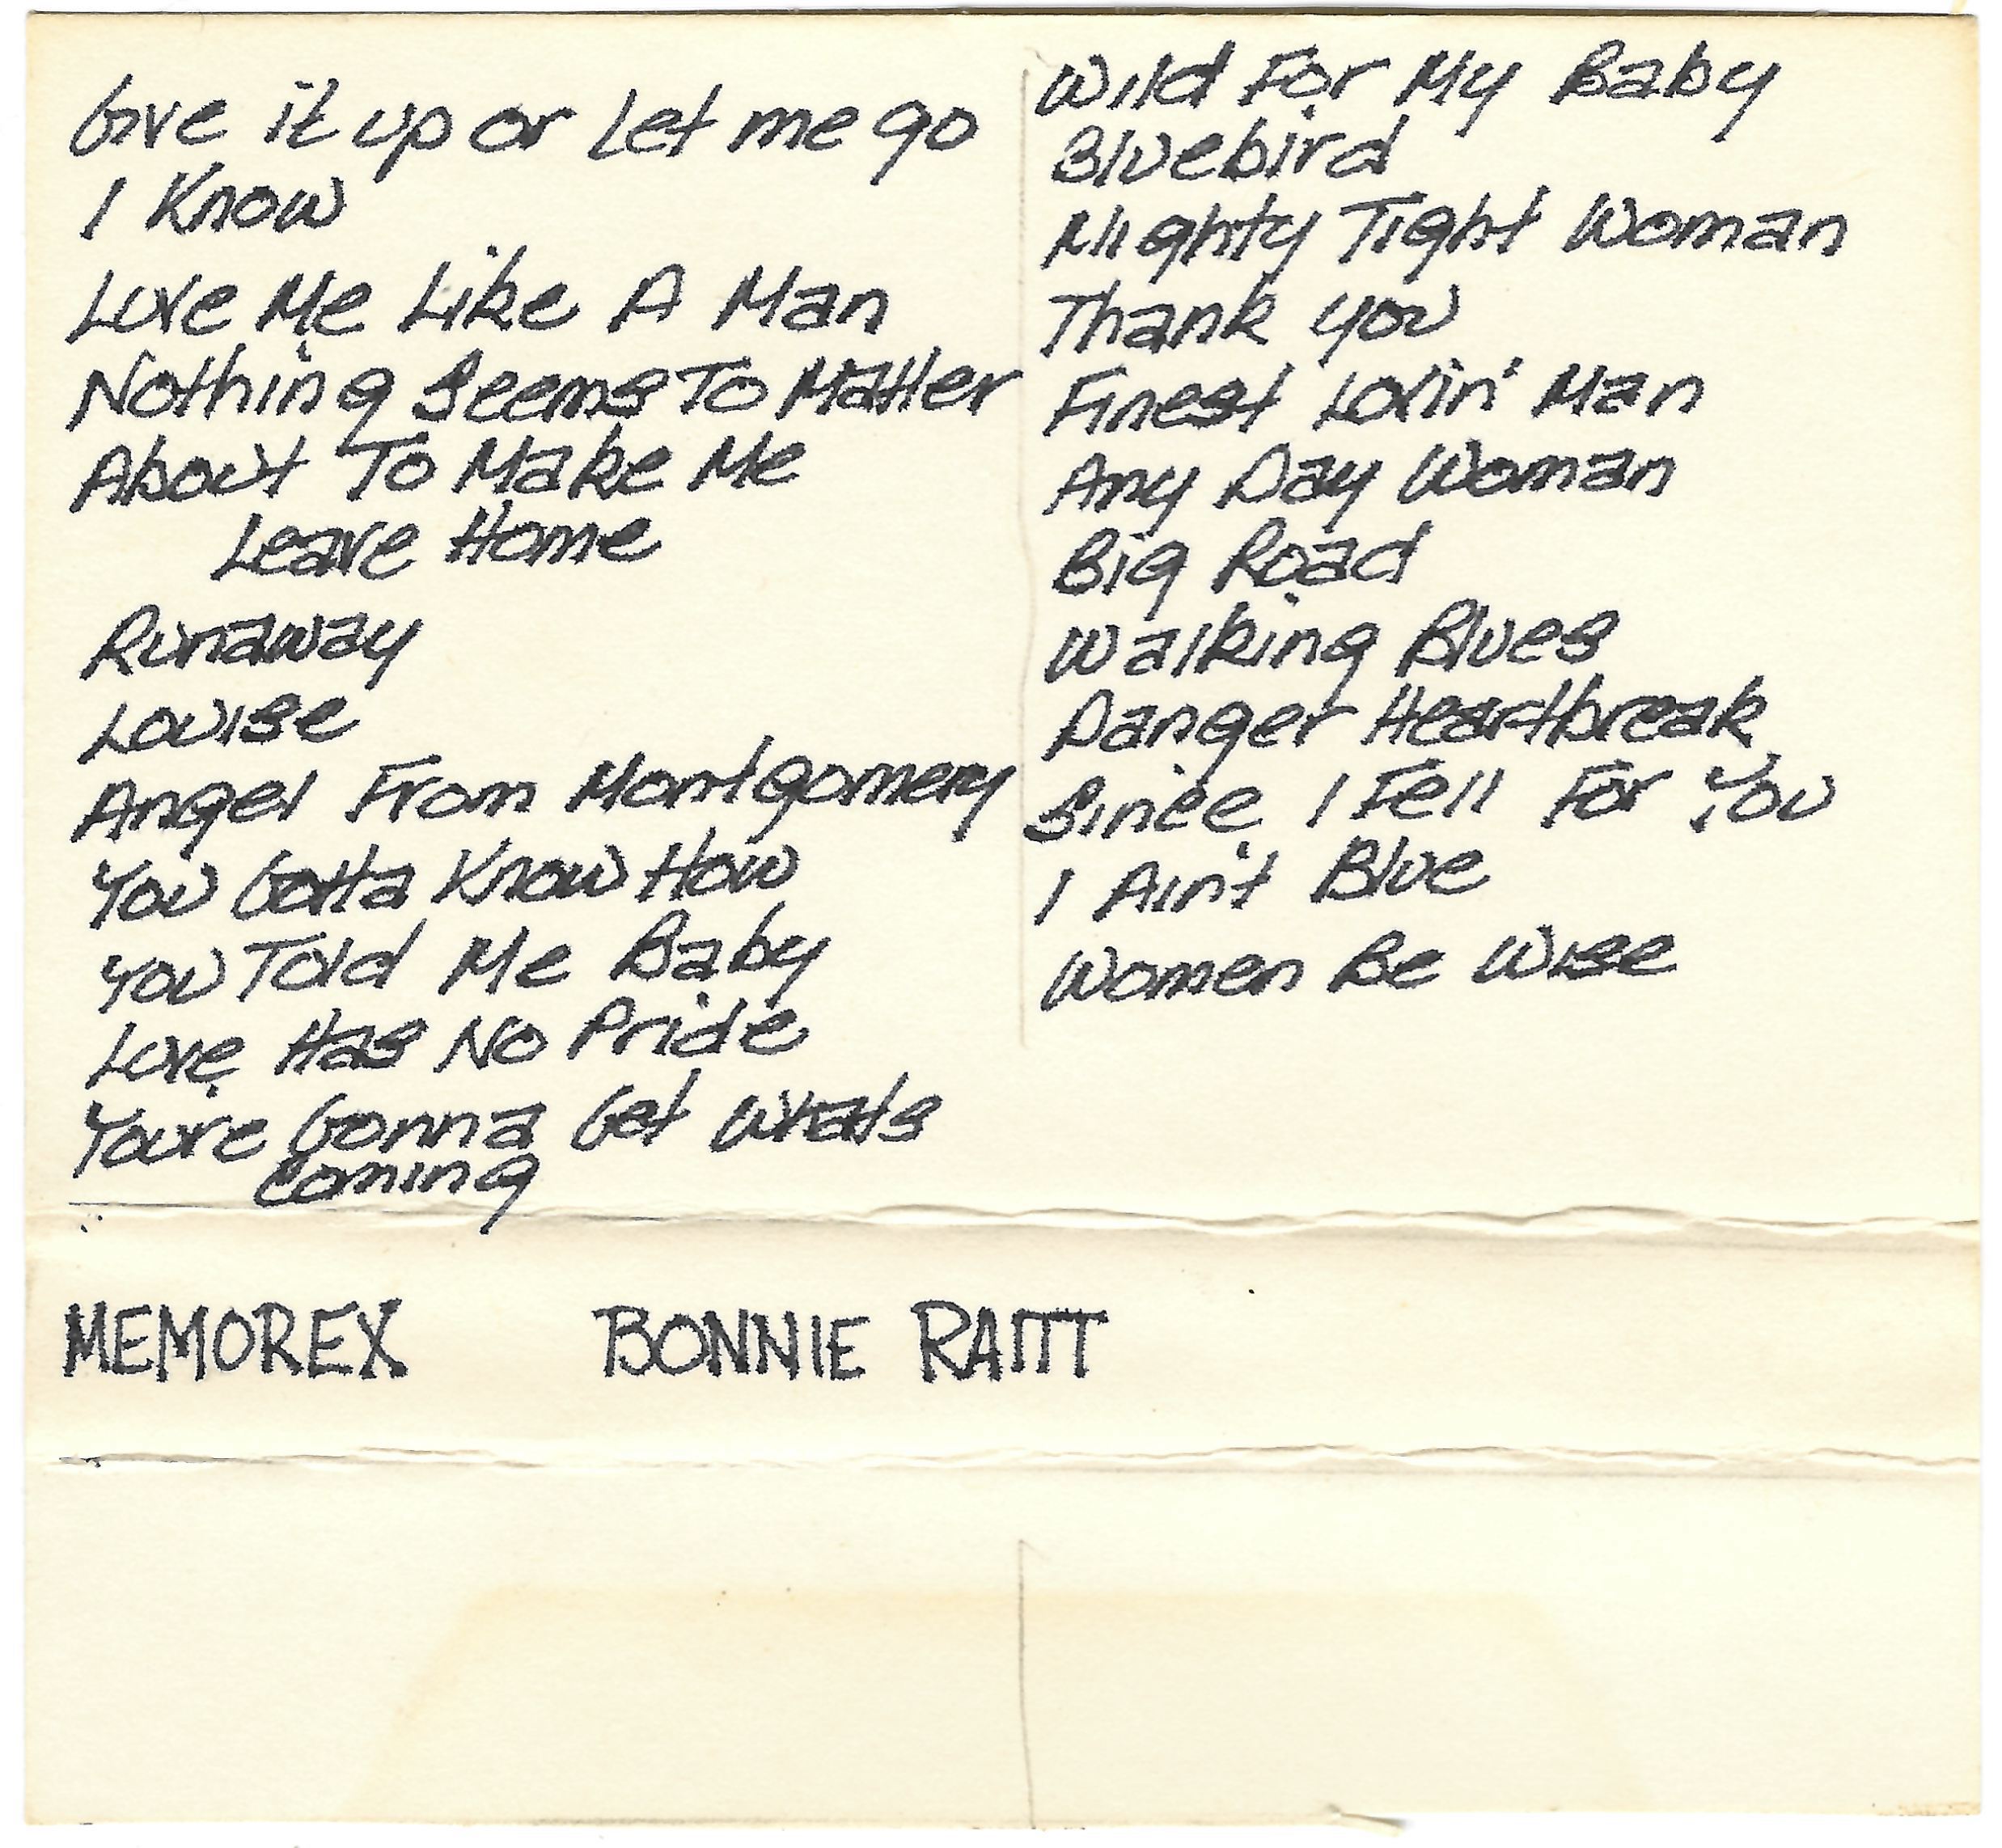 Give it up or Let me go
I Know
Love Me Like A Man
Nothing Seems To Matter
About To Make Me
Leave Home
Runaway
Louise
Angel From Montgomery
You Gotta Know How
You Told Me Baby
Love Has No Pride
You're Gonna Get Whats
Coming
Wild For My Baby
Bluebird
Mighty Tight Woman
Thank you
Finest Lovin' Man
Any Day Woman
Big Road
Walking Blues
Danger Heartbreak
Since I Fell For You
I Ain't Blue
Women Be Wise
MEMOREX BONNIE RAITT